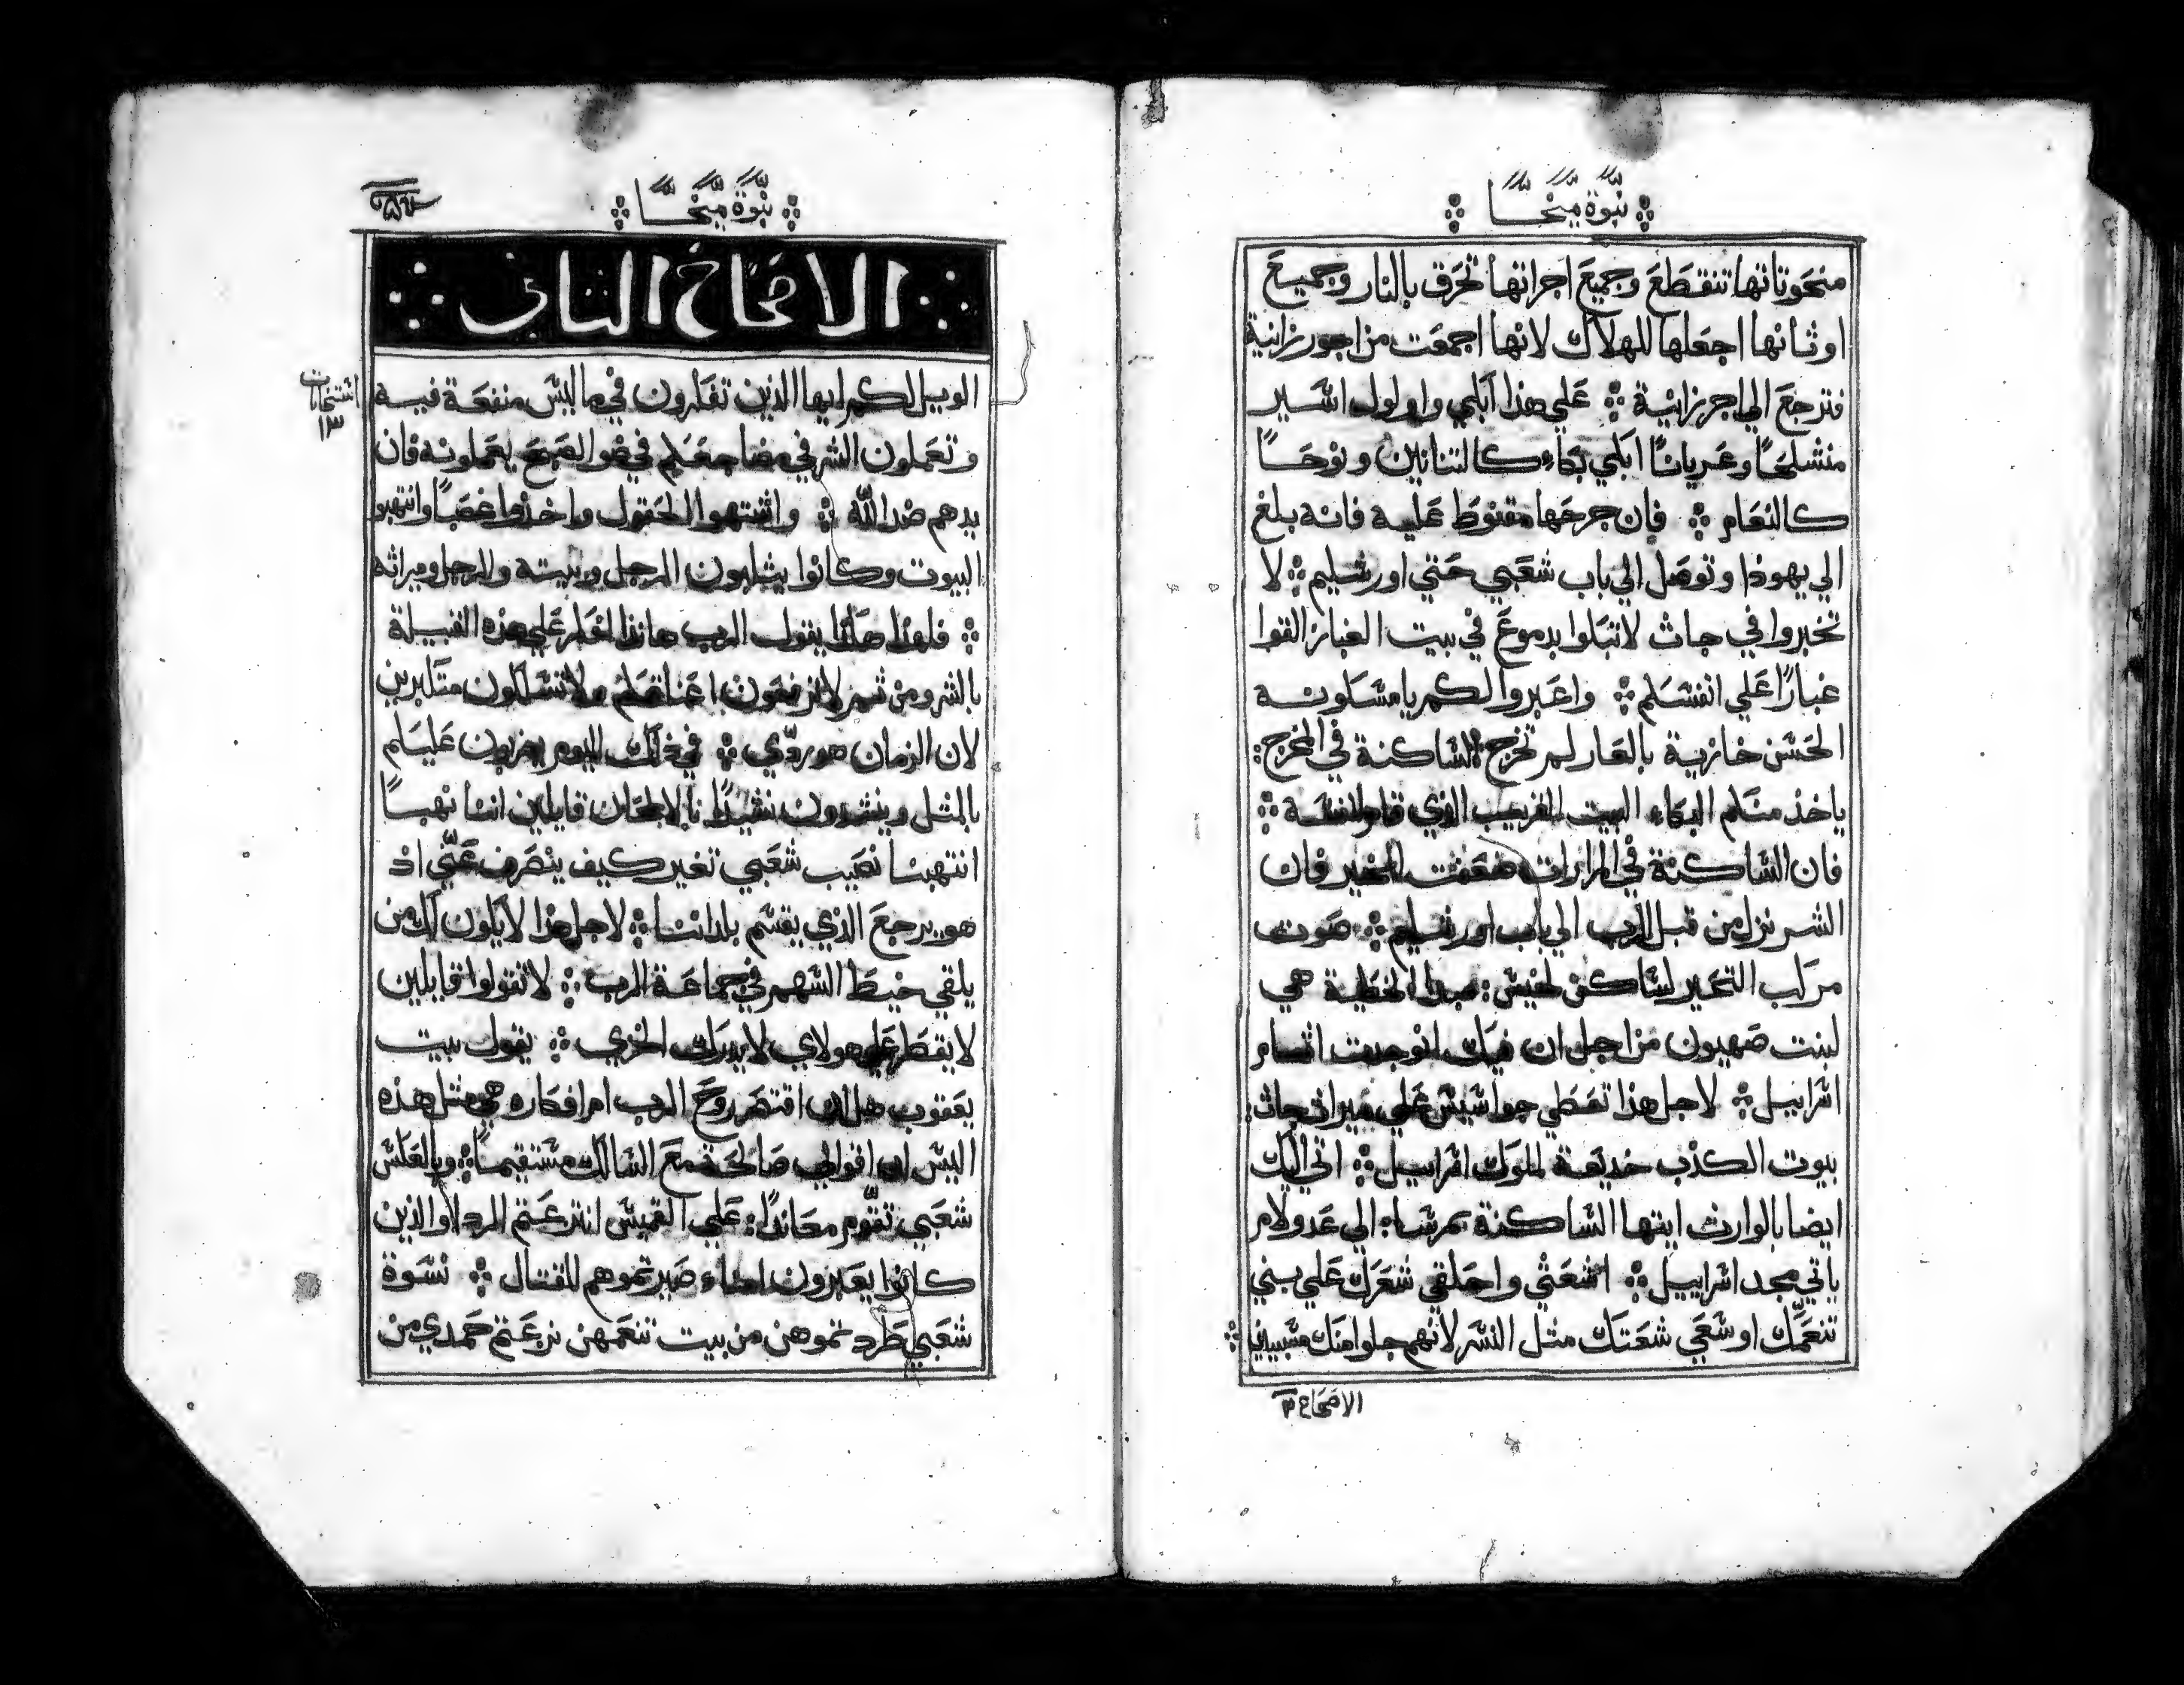 نبوة ميخا
منحوتاتها تنقطع وجميع اجراتها تحرق بالنار وجميع
اوثانها اجعلها للهلاك لانها اجمعت من اجور زانية
فترجع الي اجر زانية ∴ علي هذا ابكي واولول اسير
منسلخًا وعريانًا ابكي بكاء كالتنانين ونوحًا
كالنعام ∴ فان جرحها مقنوط عليه فانه بلغ
الي يهوذا وتوصل الي باب شعبي حتي اورشليم ∴ لا
تخبروا في جاث لاتبكوا بدموع في بيت الغبار القوا
غبارًا علي انفسكم ∴ واعبروا لكم يا مسكونة
الحسن خازية بالعار لم تخرج الساكنة في المخرج:
ياخذ منكم البكاء البيت القريب الذي قام لنفسه ∴
فان الساكنة في المرارات ضعفت للخير فان
الشر نزل من قبل الرب الي باب اورشليم ∴ صوت
مركب التحير لساكن لخيش: مبدا الخطية هي
لبنت صهيون من اجل ان فيك انوجدت اثام
اسراييل ∴ لاجل هذا تعطي جواسيس علي ميراث جاث:
بيوت الكذب خديعة لملوك اسراييل ∴ اتي اليك
ايضا بالوارث ايتها الساكنة بمرسا: الي عدولام
ياتي مجد اسراييل ∴ اشعثي واحلقي شعرك علي بني
تنعمك اوسعي شعتك مثل النسر لانهم جلوا منك مسبيين ∴
الاصحاح ٢
نبوة ميخا
الاصحاح الثاني
الويل لكم ايها الذين تفكرون في ما ليس منفعة فيه
وتعملون الشر في مضاجعكم في ضو الصبح يعملونه فان
يدهم ضد الله ∴ واشتهوا الحقول واخذوا غصبًا وانتهبوا
البيوت وكانوا يثلبون الرجل وبيته والرجل وميراثه
∴ فلهذا هكذا يقول الرب هانذا افكر علي هذه القبيلة
بالشر ومن ثم لاترفعون اعناقكم ولاتسلكون متكبرين
لان الزمان هو ردي ∴ في ذلك اليوم يضربون عليكم
بالمثل وينشدون نشيدًا بالالحان قايلين اننا نهبًا
انتهبنا نصيب شعبي تغير كيف ينصرف عني اذ
هو يرجع الذي يقسم بلداننا ∴ لاجل هذا لايكون لك من
يلقي خيط السهم في جماعة الرب ∴ لاتقولوا قايلين
لايقطر علي هولاي لايدرك الخزي ∴ يقول بيت
يعقوب هل ان اقتصر روح الرب ام افكاره هي مثل هذه
اليس ان اقوالي صالحة مع السالك مستقيمًا ∴ وبالعكس
شعبي تقوم معاندًا: علي القميص انتزعتم الردا والذين
كانوا يعبرون امناء صيرتموهم للقتال ∴ نسوة
شعبي طردتموهن من بيت تنعمهن نزعتم حمدي من